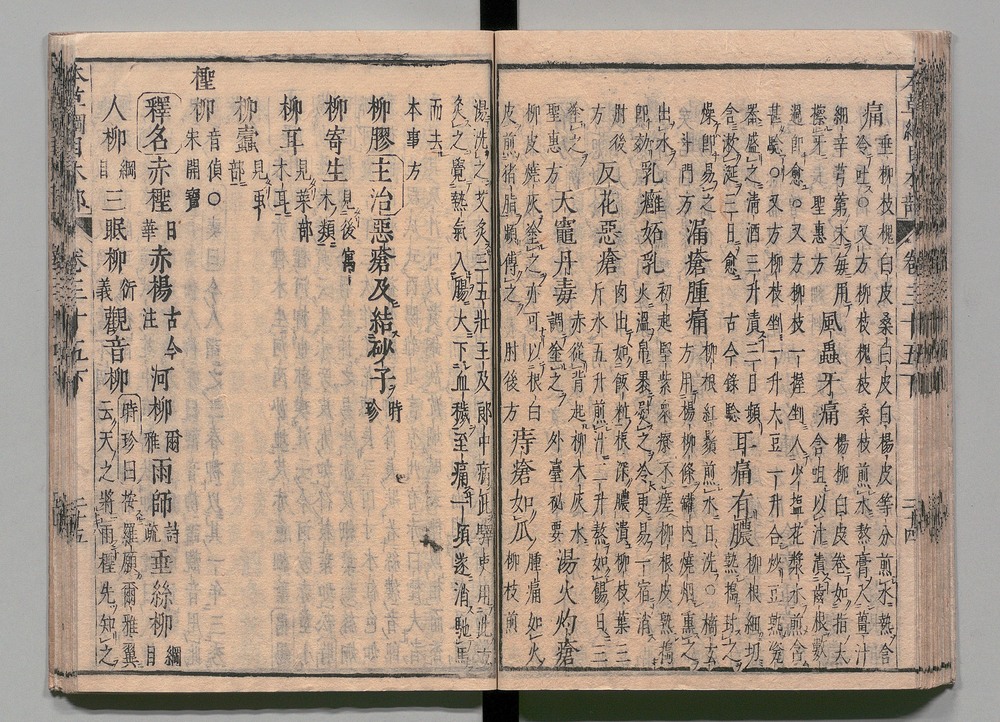 痛 垂柳枝槐白皮桑白皮白楊皮等分煎水熱含
冷吐又方柳枝槐枝桑枝煎水熬膏入薑汁
細辛芎藭末每用 風蟲牙痛 楊柳白皮卷如指大
含咀以汁漬齒根數
過即愈○又方柳枝一握剉入少鹽花漿水煎含
甚驗○又方柳枝剉一升大豆一升合炒豆熟瓷
器盛之清酒三升漬三日頻
含漱涎三日愈 古今錄驗 耳痛有膿 柳根細切
熟搗封之
燥即易之 斗門方 漏瘡腫痛 柳根紅鬚煎水日洗○
方用楊柳條罐內燒烟熏之
出水即效 乳癰妬乳 初起堅紫衆療不瘥柳根皮熟搗
火溫帛裹熨之冷更易一宿消
肘後方 反花惡瘡 肉出如飯粒根深膿潰柳枝葉三
斤水五升煎汁二升熬如餳日三
塗之 聖惠方 天竈丹毒 赤從背起柳木灰水
調塗之 外臺祕要 湯火灼瘡
柳皮燒灰塗之亦可以根白
皮煎猪脂頻傅之 肘後方 痔瘡如瓜 腫痛如火
柳枝煎
湯洗之艾灸三五壯王及郎中病此驛吏用此方
灸之覺熱氣入腸大下血穢至痛一頃遂消馳馬
而去 本事方
柳膠 主治 惡瘡及結砂子 時珍
柳寄生 見後寓木類
柳耳 見菜部木耳
柳蠹 見蟲部
檉柳 音偵○宋開寶
釋名 赤檉 日華 赤楊 古今注 河柳 爾雅 雨師 詩疏 垂絲柳 綱目
人柳 綱目 三眠柳 衍義 觀音柳 時珍曰按羅願爾雅翼
云天之將雨檉先知之